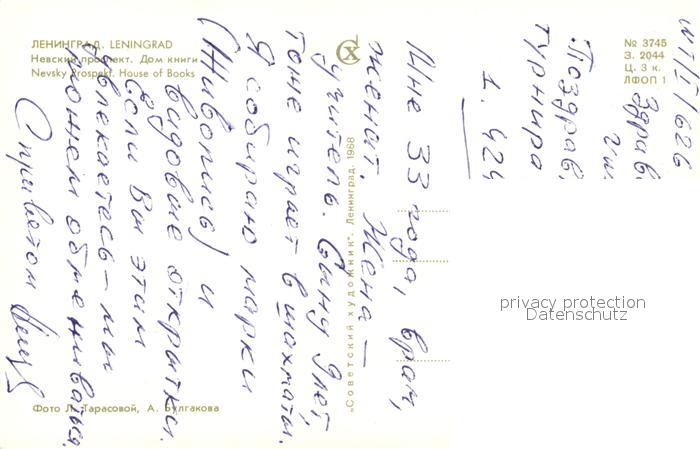 ЛЕНИНГРАД. LENINGRAD
Невский проспект. Дом книги
Nevsky Prospekt. House of Books
№ 3745
З. 2044
Ц. 3 к.
ЛФОП 1
"Советский художник". Ленинград. 1968
Фото Л. Тарасовой, А. Булгакова
privacy protection
Datenschutz
WT/II/626
Здрав.
Поздрав.
турнира
1. <u>4</u>24
Мне 33 года, врач,
женат. Жена —
учитель. Сыну 9 лет,
тоже играет в шахматы.
Я собираю марки
(живопись) и
видовые открытки.
Если Вы этим
увлекаетесь — мы
можем обмениваться.
С приветом